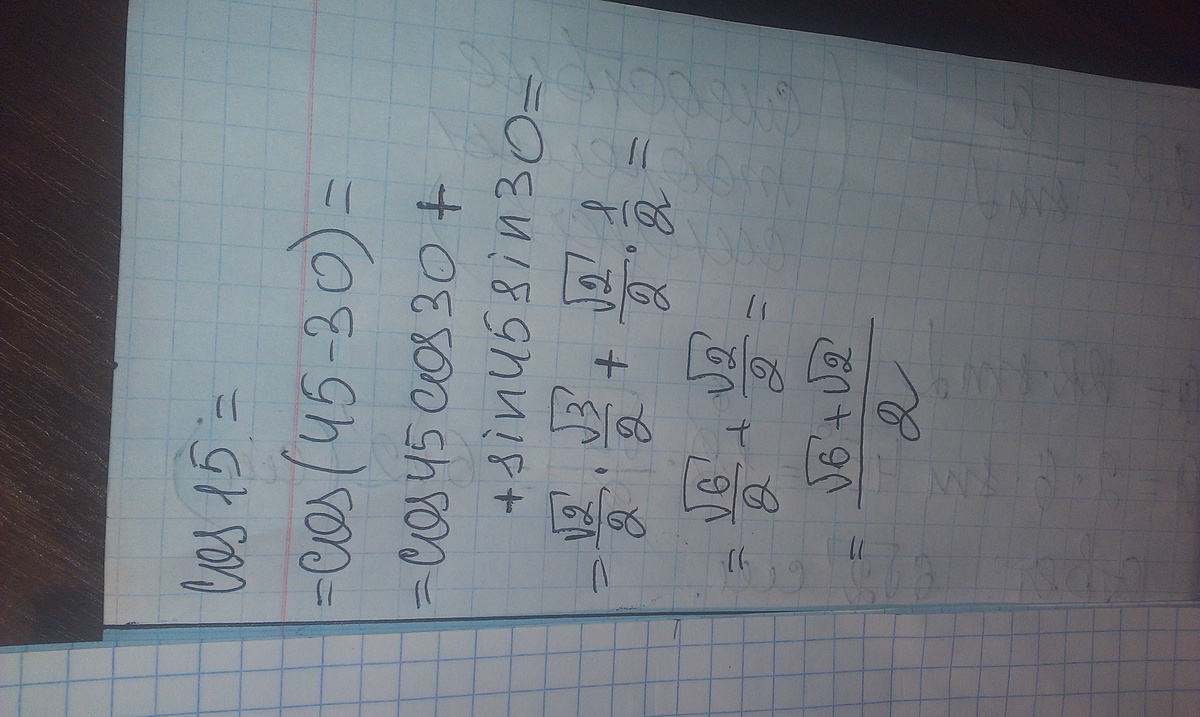 cos 15 =
= cos (45 - 30) =
= cos 45 cos 30 +
+ sin 45 sin 30 =
= √2/2 · √3/2 + √2/2 · 1/2 =
= √6/2 + √2/2 =
= (√6 + √2)/2